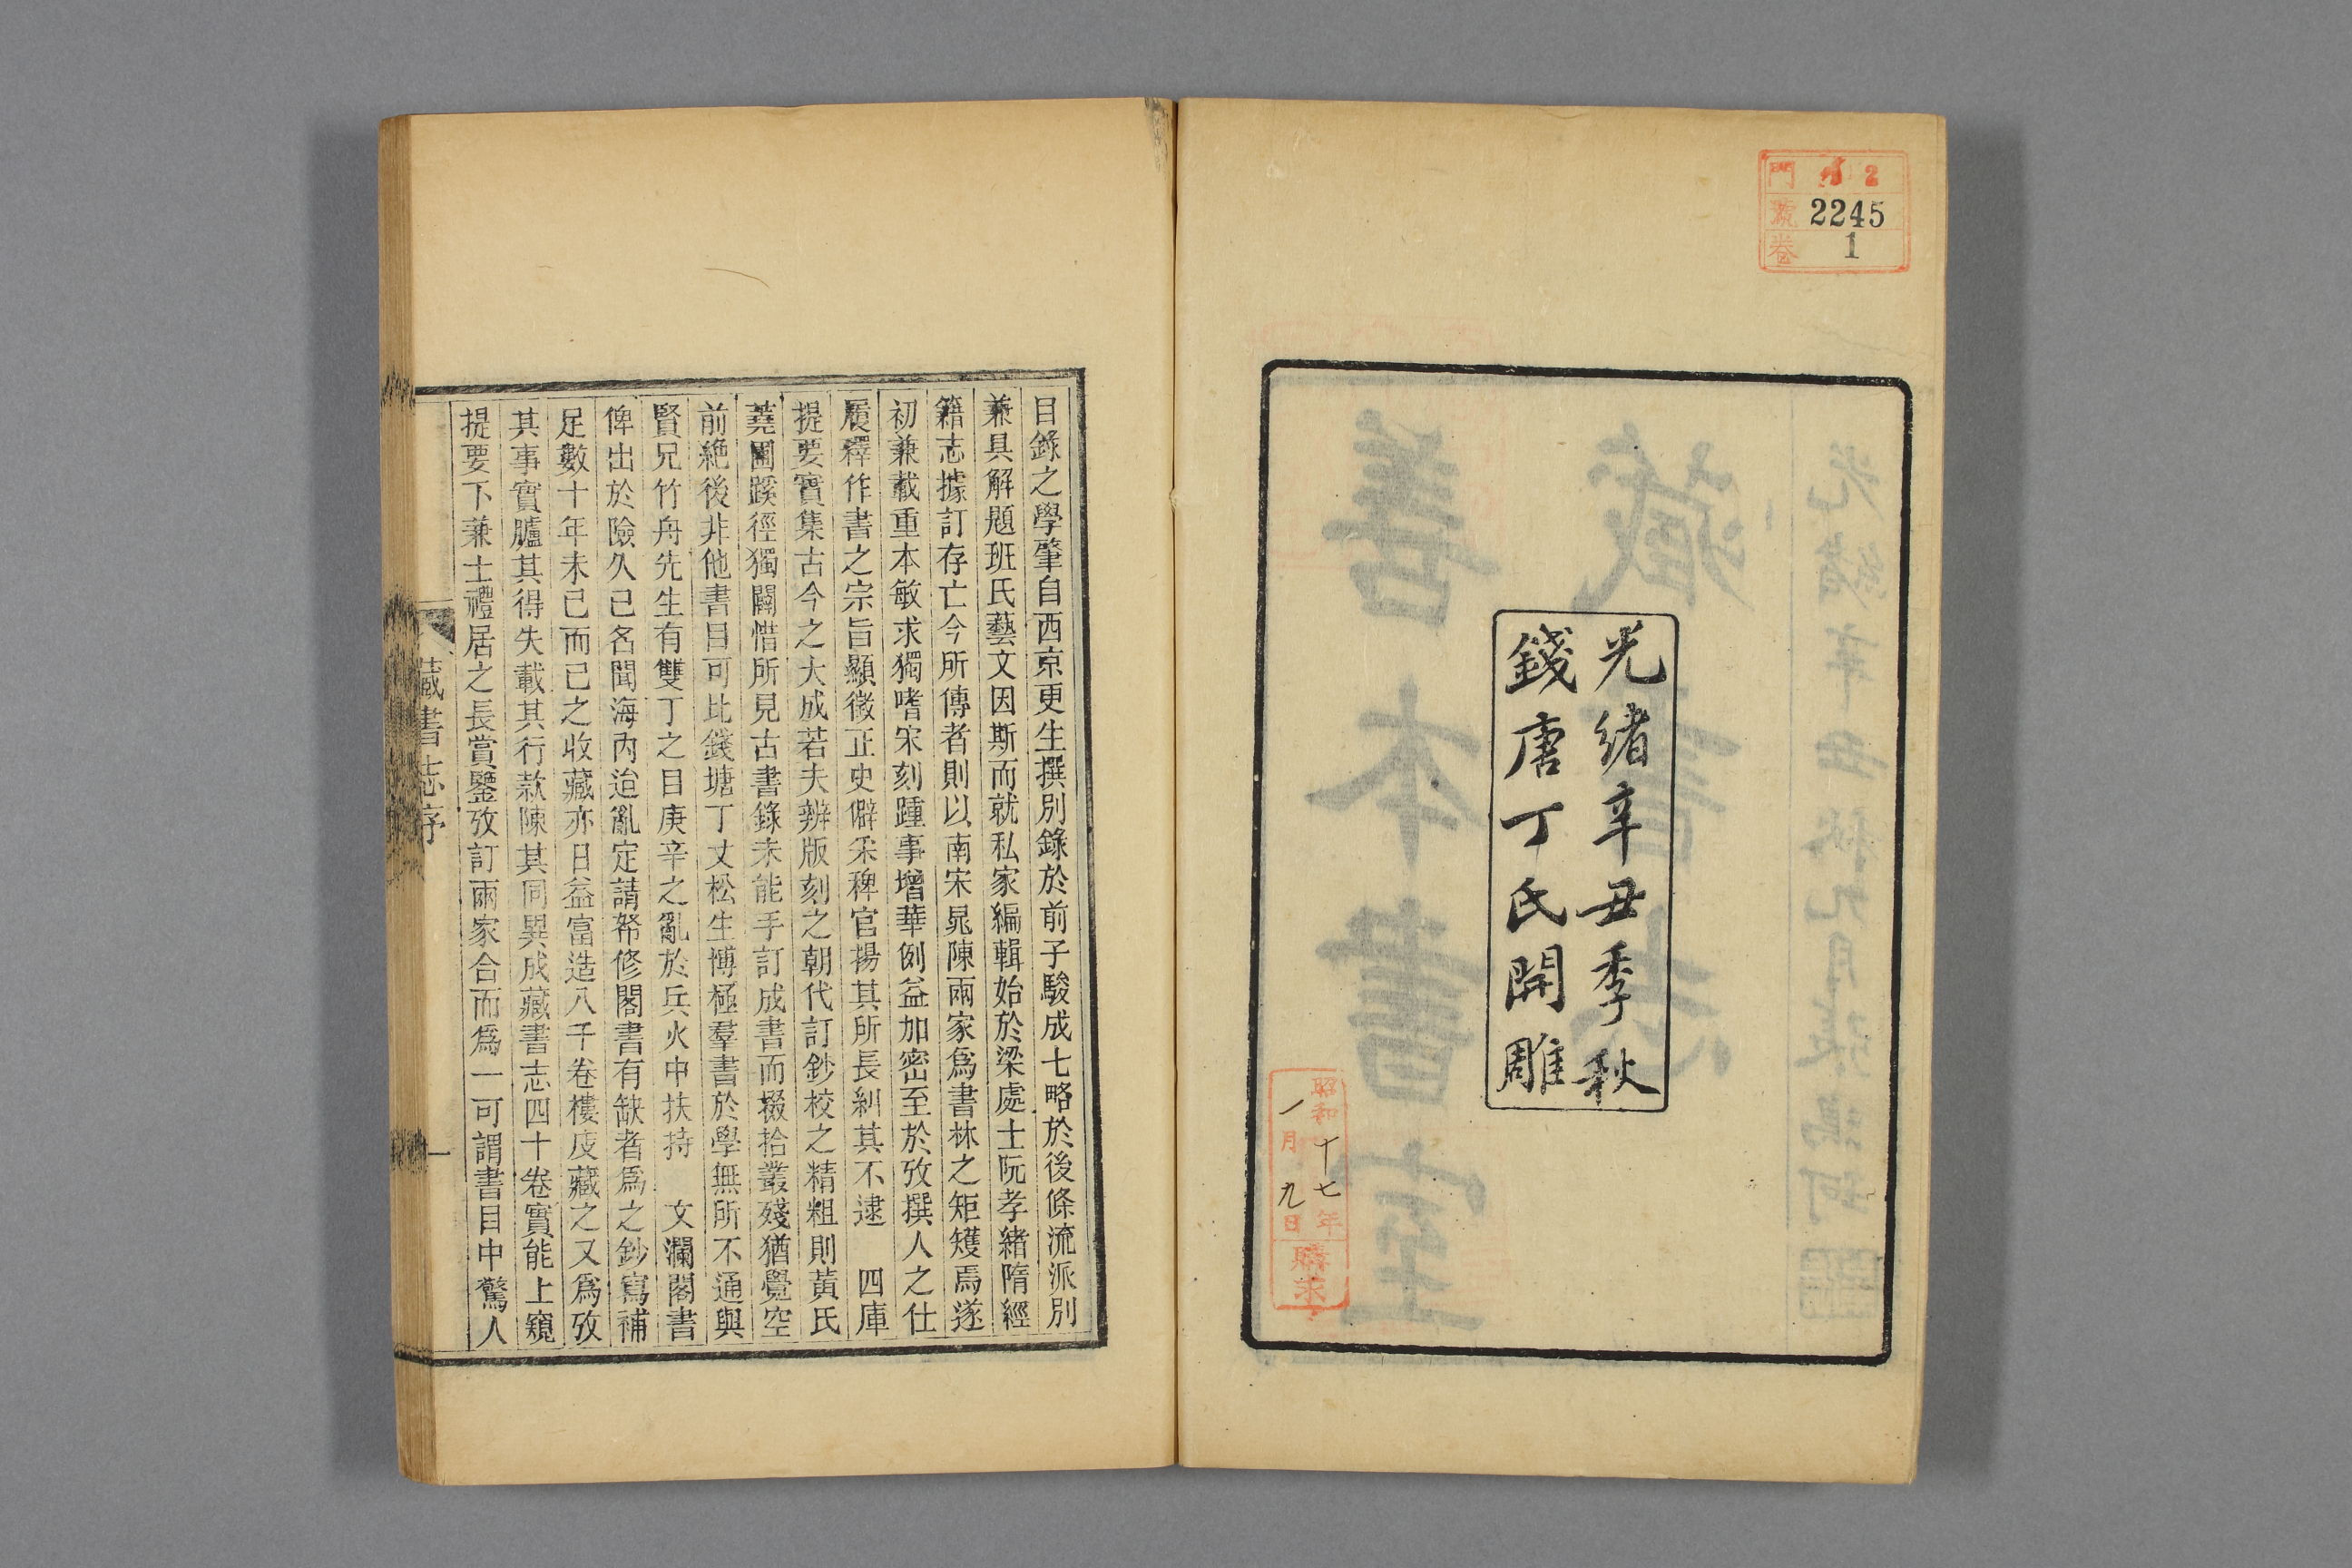 門 2
號 2245
卷 1
光緒辛丑季秋
錢唐丁氏開雕
昭和十七年
一月九日
購求
目錄之學肇自西京更生撰別錄於前子駿成七略於後條流派別
兼具解題班氏藝文因斯而就私家編輯始於梁處士阮孝緒隋經
籍志據訂存亡今所傳者則以南宋晁陳兩家爲書林之矩矱焉遂
初兼載重本敏求獨嗜宋刻踵事增華例益加密至於攷撰人之仕
履釋作書之宗旨顯徵正史僻采稗官揚其所長糾其不逮 四庫
提要實集古今之大成若夫辨版刻之朝代訂鈔校之精粗則黃氏
蕘圃蹊徑獨闢惜所見古書錄未能手訂成書而掇拾叢殘猶覺空
前絕後非他書目可比錢塘丁丈松生博極羣書於學無所不通與
賢兄竹舟先生有雙丁之目庚辛之亂於兵火中扶持 文瀾閣書
俾出於險久已名聞海內迨亂定請帑修閣書有缺者爲之鈔寫補
足數十年未已而己之收藏亦日益富造八千卷樓庋藏之又爲攷
其事實臚其得失載其行款陳其同異成藏書志四十卷實能上窺
提要下兼士禮居之長賞鑒攷訂兩家合而爲一可謂書目中驚人
藏書志序
一